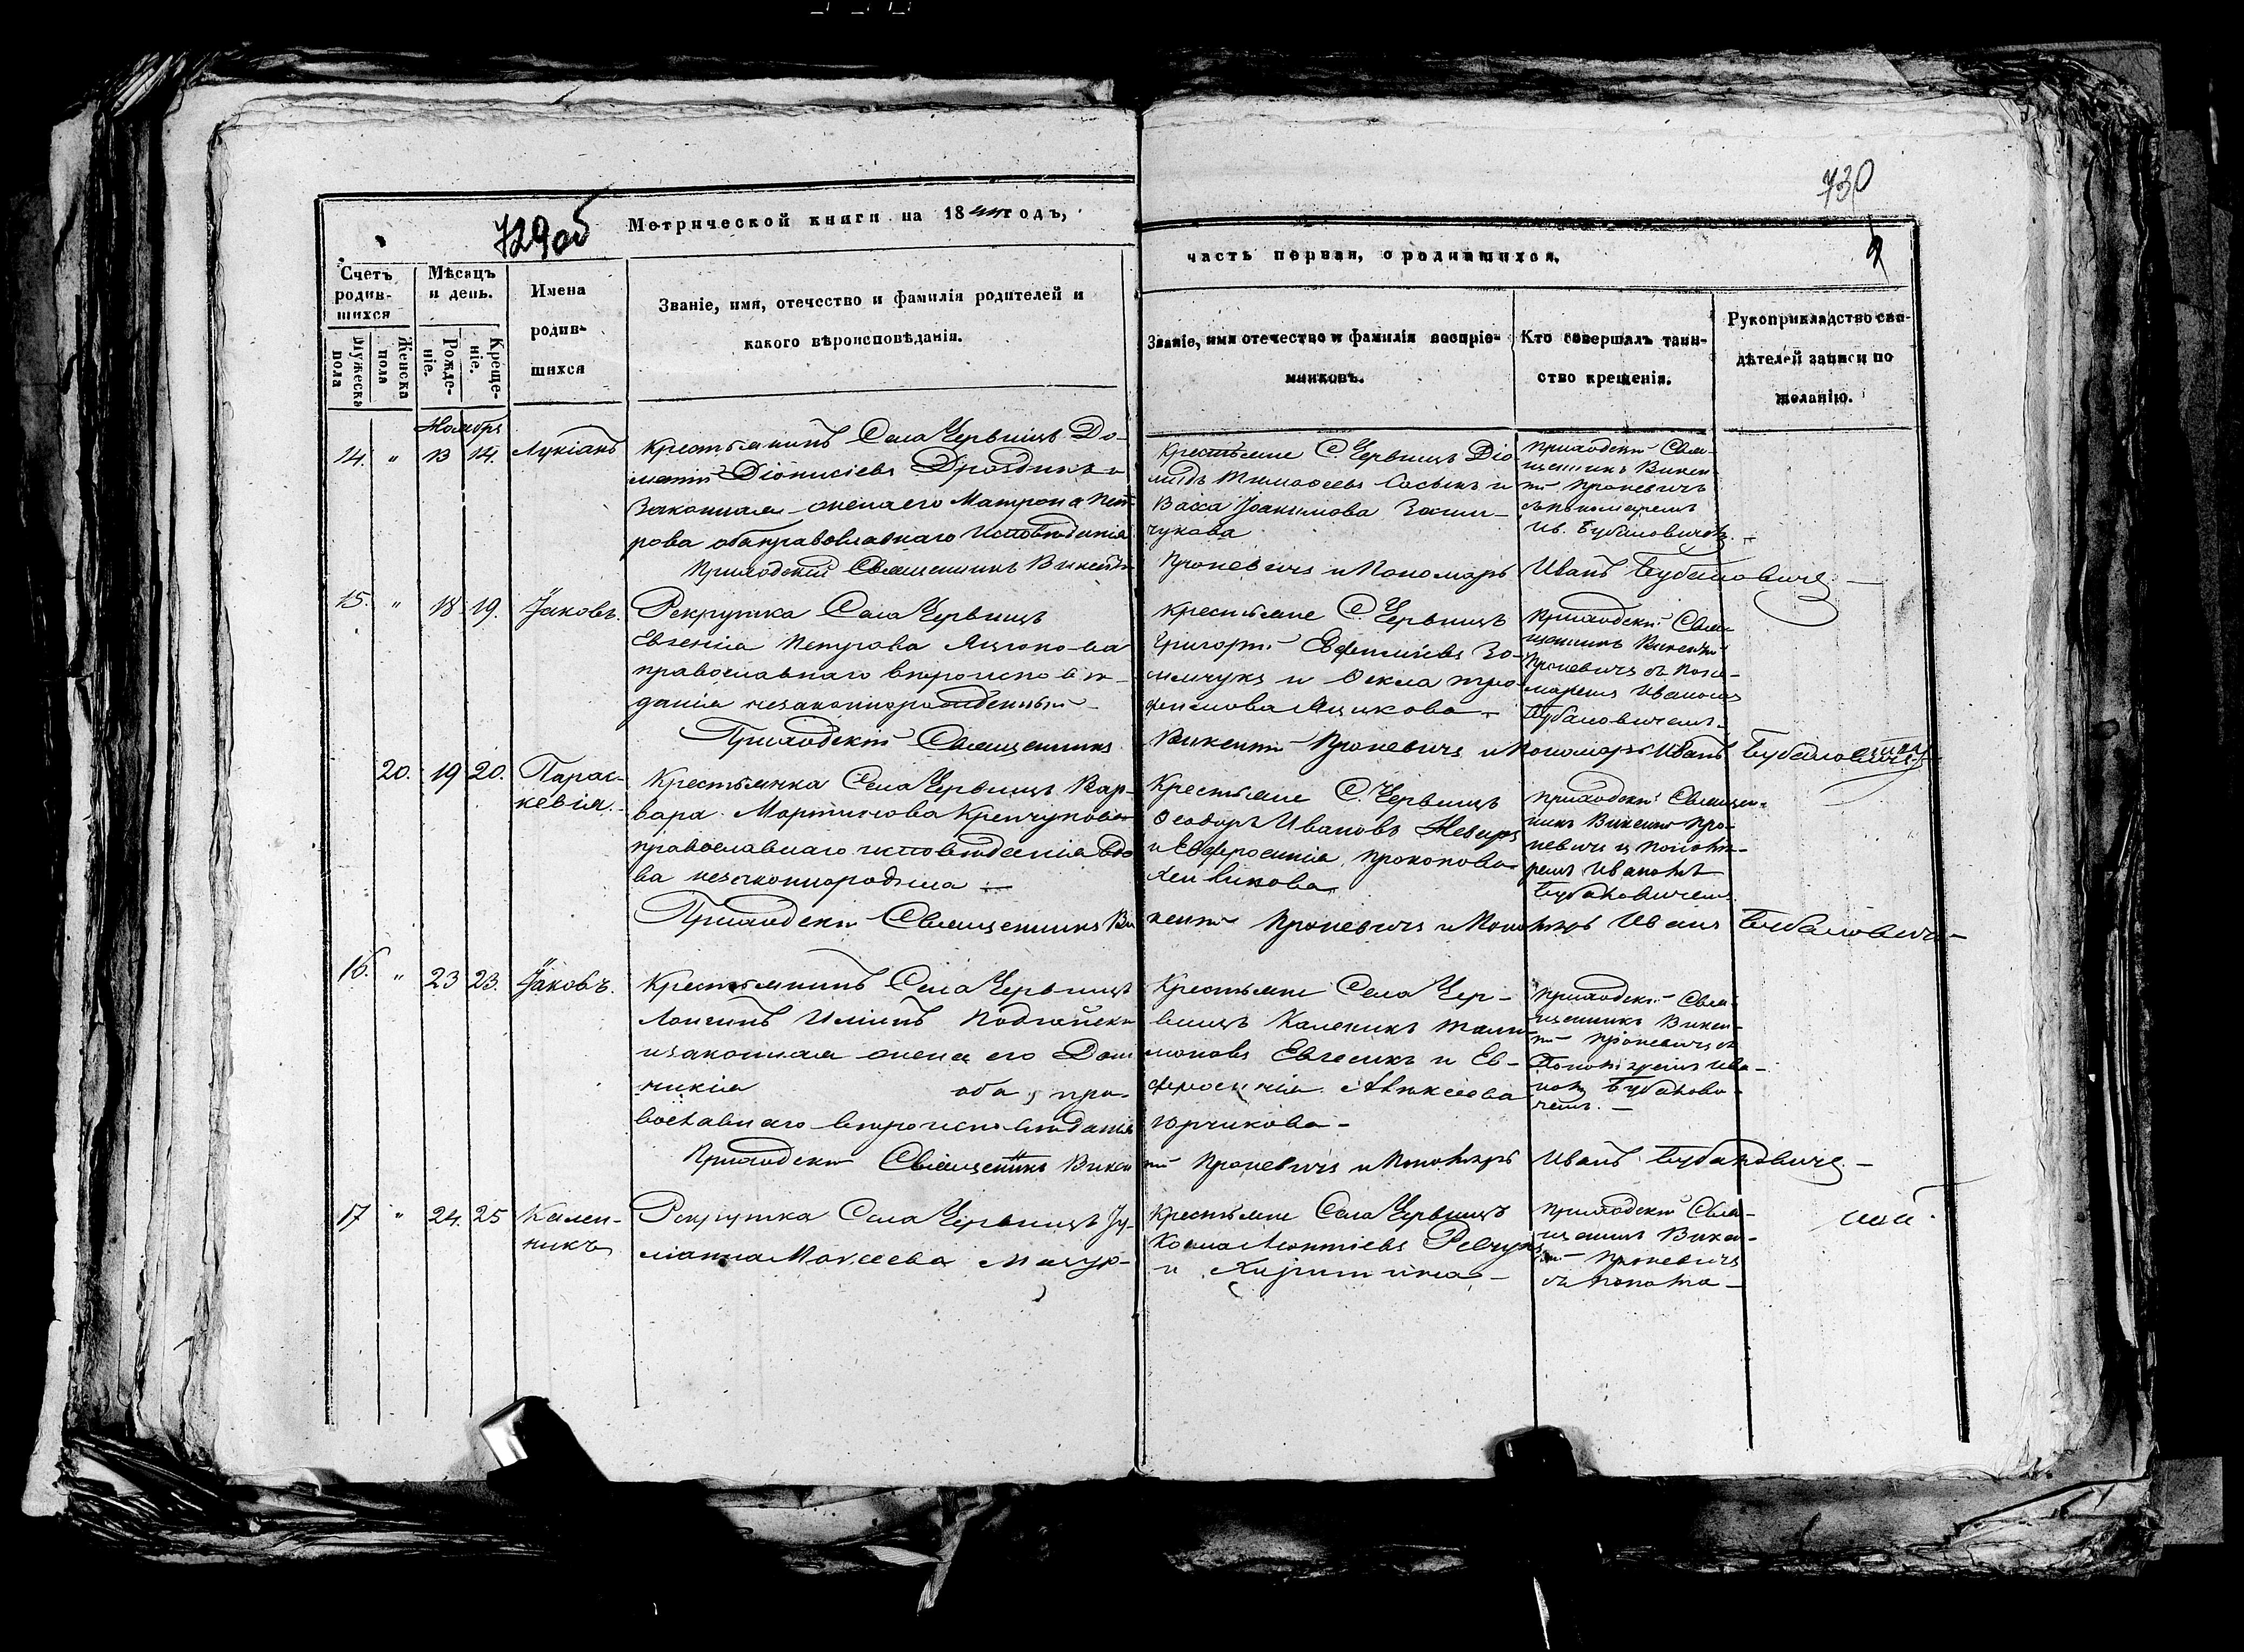 730
729об
Метрической книги на 18 годъ,
часть первая, о родившихся.
Счетъ родив-
шихся
Мужеска пола
Женска пола
Мѣсяцъ и день.
Рожде-
ніе.
Креще-
ніе.
Имена
родив-
шихся
Званіе, имя, отечество и фамилія родителей и
какого вѣроисповѣданія.
Званіе, имя отечество и фамилія воспріе-
мниковъ.
Кто совершалъ таин-
ство крещенія.
Рукоприкладство сви-
дѣтелей записи по
желанію.
Ноябрь
14. " 13 14. Лукіанъ
Крестьянинъ Села Червищъ До-
Діонисіевъ Дроздикъ и
Законная жена его Матрона Пет-
рова оба православнаго исповѣданія
Крестьяне С. Червищъ Діо-
мидъ Тимофеевъ Сасыкъ и
Васса Іоакимова
чукова
Приходскій Свя-
щенникъ Викен-
тій Проневичъ
съ пономаремъ
Ив. Бубановичемъ.
Приходскій Священникъ Викентій Проневичъ и Пономарь Иванъ Бубановичъ
15. " 18 19. Іаковъ.
Рекрутка Села Червищъ
Евгенія Петрова
православнаго вѣроисповѣ-
данія незаконнорожденный
Крестьяне С. Червищъ
Григорій Евфиміевъ Зо-
и Ѳекла Тро-
фимова Яцикова
Приходскій Свя-
щенникъ Викентій
Проневичъ съ Поно-
маремъ Иваномъ
Бубановичемъ.
Приходскій Священникъ Викентій Проневичъ и Пономарь Иванъ Бубановичъ
20. 19 20. Парас-
кевія.
Крестьянка Села Червищъ Вар-
вара Мартинова
православнаго исповѣданія вдо-
ва незаконнородна
Крестьяне С. Червищъ
Ѳеодоръ Ивановъ
и Евфросинія Прокопова
Приходскій Священ-
никъ Викентій Про-
невичъ и Понома-
ремъ Иваномъ
Бубановичемъ
Приходскій Священникъ Викентій Проневичъ и Пономарь Иванъ Бубановичъ
16. " 23 23. Іаковъ.
Крестьянинъ Села Червищъ
Лонгинъ Илiинъ
и законная жена его Дом-
никія оба пра-
вославнаго вѣроисповѣданія
Крестьяне Села Чер-
вищъ Каленикъ
Евсеикъ и Ев-
фросинія Алексеева
Юрчикова
Приходскій Свя-
щенникъ Викен-
тій Проневичъ съ
Пономаремъ Ива-
номъ Бубанови-
чемъ.
Приходскій Священникъ Викентій Проневичъ и Пономарь Иванъ Бубановичъ
17 " 24. 25 Кален-
никъ
Рекрутка Села Червищъ Іу-
ліанна Моисеева
Крестьяне Села Червищъ
Косма Леонтіевъ Ревчукъ
и Христина
Приходскій Свя-
щенникъ Викен-
тій Проневичъ
съ Понома-